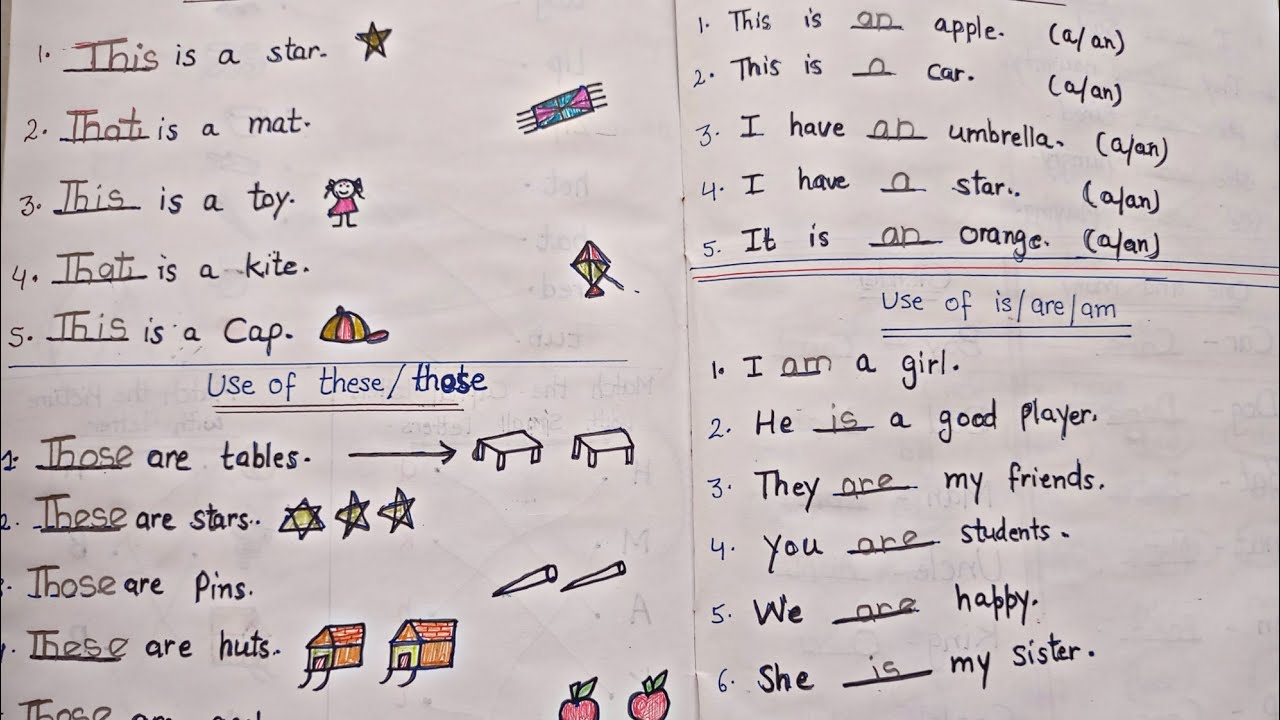 1. This is a star.
2. That is a mat.
3. This is a toy.
4. That is a kite.
5. This is a Cap.
Use of these/those
1. Those are tables.
2. These are stars..
3. Those are Pins.
4. These are huts.
Those are
1. This is an apple. (a/an)
2. This is a car. (a/an)
3. I have an umbrella. (a/an)
4. I have a star.. (a/an)
5. It is an orange. (a/an)
Use of is/are/am
1. I am a girl.
2. He is a good player.
3. They are my friends.
4. you are students.
5. We are happy.
6. She is my sister.